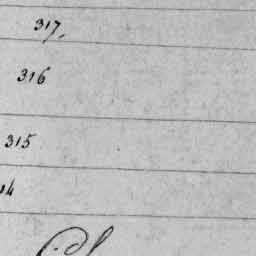 317,
316
315
14